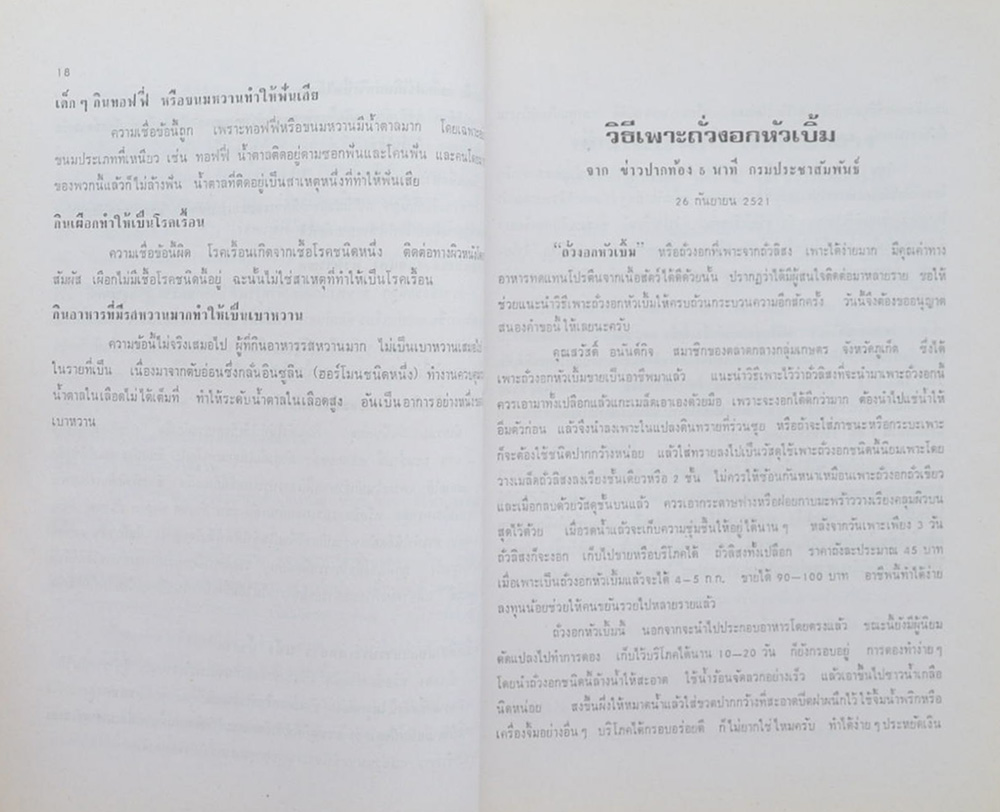 18
เด็ก ๆ กินทอฟฟี่ หรือขนมหวานทำให้ฟันเสีย
ความเชื่อข้อนี้ถูก เพราะทอฟฟี่หรือขนมหวานมีน้ำตาลมาก โดยเฉพาะ
ขนมประเภทที่เหนียว เช่น ทอฟฟี่ น้ำตาลติดอยู่ตามซอกฟันและโคนฟัน และคน
ของพวกนี้แล้วก็ไม่ล้างฟัน น้ำตาลที่ติดอยู่เป็นสาเหตุหนึ่งที่ทำให้ฟันเสีย
กินเผือกทำให้เป็นโรคเรื้อน
ความเชื่อข้อนี้ผิด โรคเรื้อนเกิดจากเชื้อโรคชนิดหนึ่ง ติดต่อทางผิวหนัง
สัมผัส เผือกไม่มีเชื้อโรคชนิดนี้อยู่ ฉะนั้นไม่ใช่สาเหตุที่ทำให้เป็นโรคเรื้อน
กินอาหารที่มีรสหวานมากทำให้เป็นเบาหวาน
ความข้อนี้ไม่จริงเสมอไป ผู้ที่กินอาหารรสหวานมาก ไม่เป็นเบาหวาน
ในรายที่เป็น เนื่องมาจากตับอ่อนซึ่งกลั่นอินซูลิน (ฮอร์โมนชนิดหนึ่ง) ทำงานควบคุม
น้ำตาลในเลือดไม่ได้เต็มที่ ทำให้ระดับน้ำตาลในเลือดสูง อันเป็นอาการอย่างหนึ่ง
เบาหวาน
วิธีเพาะถั่วงอกหัวเบิ้ม
จาก ข่าวปากท้อง 5 นาที กรมประชาสัมพันธ์
26 กันยายน 2521
"ถั่วงอกหัวเบิ้ม" หรือถั่วงอกที่เพาะจากถั่วลิสง เพาะได้ง่ายมาก มีคุณค่าทาง
อาหารทดแทนโปรตีนจากเนื้อสัตว์ได้ดีด้วยนั้น ปรากฏว่าได้มีผู้สนใจติดต่อมาหลายราย ขอให้
ช่วยแนะนำวิธีเพาะถั่วงอกหัวเบิ้มให้ครบถ้วนกระบวนความอีกสักครั้ง วันนี้จึงต้องขออนุญาต
สนองคำขอนี้ให้เลยนะครับ
คุณสวัสดิ์ อนันต์กิจ สมาชิกของตลาดกลางกลุ่มเกษตร จังหวัดภูเก็ต ซึ่งได้
เพาะถั่วงอกหัวเบิ้มขายเป็นอาชีพมาแล้ว แนะนำวิธีเพาะไว้ว่าถั่วลิสงที่จะนำมาเพาะถั่วงอกนี้
ควรเอามาทั้งเปลือกแล้วแกะเมล็ดเอาเองด้วยมือ เพราะจะงอกได้ดีกว่ามาก ต้องนำไปแช่น้ำให้
อิ่มตัวก่อน แล้วจึงนำลงเพาะในแปลงดินทรายที่ร่วนซุย หรือถ้าจะใส่ภาชนะหรือกระบะเพาะ
ก็จะต้องใช้ชนิดปากกว้างหน่อย แล้วใส่ทรายลงไปเป็นวัสดุใช้เพาะถั่วงอกชนิดนี้นิยมเพาะโดย
วางเมล็ดถั่วลิสงลงเรียงชั้นเดียวหรือ 2 ชั้น ไม่ควรให้ซ้อนกันหนาเหมือนเพาะถั่วงอกถั่วเขียว
และเมื่อกลบด้วยวัสดุชั้นบนแล้ว ควรเอากระดาษฟางหรือฝอยกาบมะพร้าววางเรียงคลุมผิวบน
สุดไว้ด้วย เมื่อรดน้ำแล้วจะเก็บความชุ่มชื้นให้อยู่ได้นาน ๆ หลังจากวันเพาะเพียง 3 วัน
ถั่วลิสงก็จะงอก เก็บไปขายหรือบริโภคได้ ถั่วลิสงทั้งเปลือก ราคาถังละประมาณ 45 บาท
เมื่อเพาะเป็นถั่วงอกหัวเบิ้มแล้วจะได้ 4–5 ก.ก. ขายได้ 90–100 บาท อาชีพนี้ทำได้ง่าย
ลงทุนน้อยช่วยให้คนขยันรวยไปหลายรายแล้ว
ถั่วงอกหัวเบิ้มนี้ นอกจากจะนำไปประกอบอาหารโดยตรงแล้ว ขณะนี้ยังมีผู้นิยม
ดัดแปลงไปทำการดอง เก็บไว้บริโภคได้นาน 10–20 วัน ก็ยังกรอบอยู่ การดองทำง่าย ๆ
โดยนำถั่วงอกชนิดนี้ล้างน้ำให้สะอาด ใช้น้ำร้อนจัดลวกอย่างเร็ว แล้วเอาขึ้นไปซาวน้ำเกลือ
นิดหน่อย สงขึ้นผึ่งให้หมาดน้ำแล้วใส่ขวดปากกว้างที่สะอาดปิดฝาผนึกไว้ ใช้จิ้มน้ำพริกหรือ
เครื่องจิ้มอย่างอื่น ๆ บริโภคได้กรอบอร่อยดี ก็ไม่ยากใช่ไหมครับ ทำได้ง่าย ๆ ประหยัดเงิน